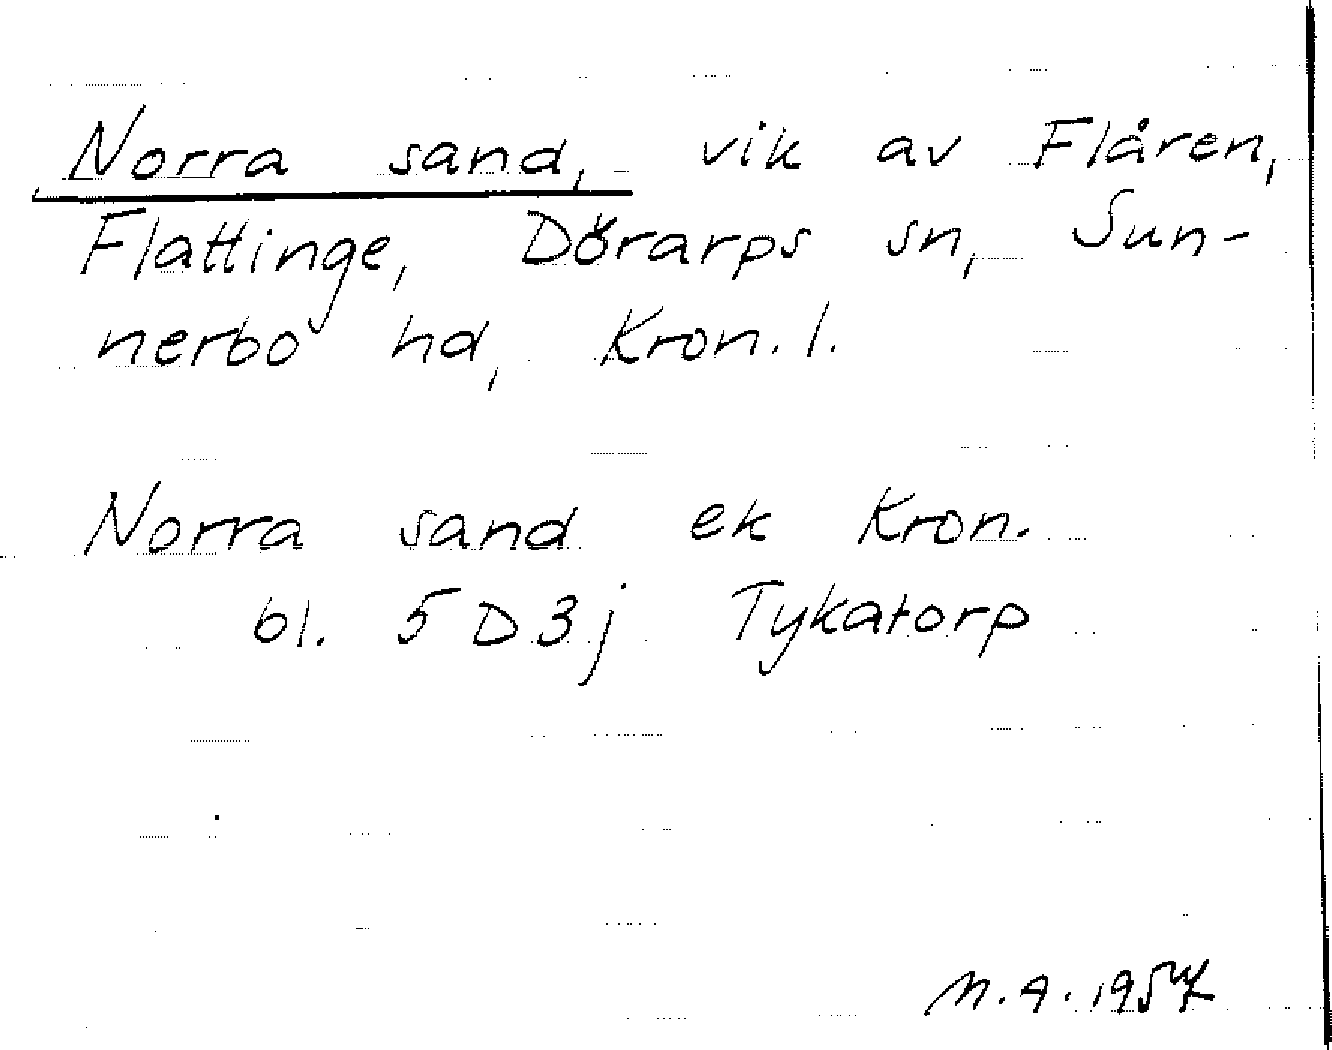 Norra sand, vik av Flåren,
Flattinge, Dörarps sn, Sun-
nerbo hd, Kron. l.
Norra sand ek Kron.
bl. 5D3j Tykatorp
M.A. 1957